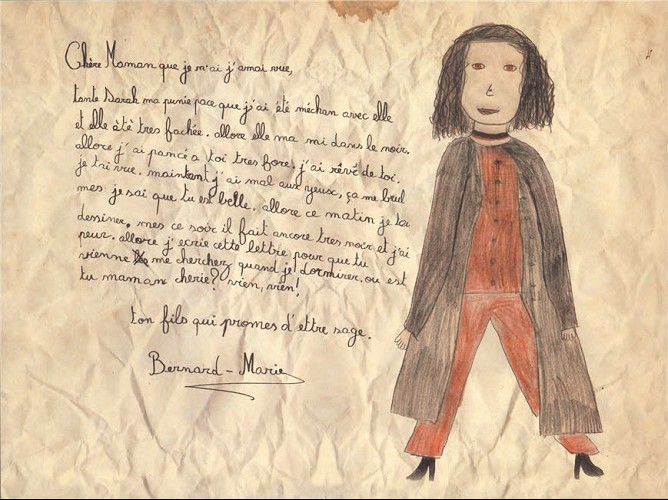 Chère Maman que je n'ai j'amai vue,
tante Sarah ma punie pace que j'ai été méchan avec elle
et elle àtè tres fachée. allore elle ma mi dans le noir.
allore j'ai pancé a toi tres fore, j'ai rêvé de toi,
je t'ai vue. maintant j'ai mal aux yeux, ça me brul
mes je sai que tu es belle. allore ce matin je ta
dessiner. mes ce soir il fait ancore tres noir et j'ai
peur. allore j'ecrie cette lettre pour que tu
vienne me cherchez quand je dormirer. ou est
tu maman cherie? vien, vien!
ton fils qui promes d'ettre sage.
Bernard-Marie